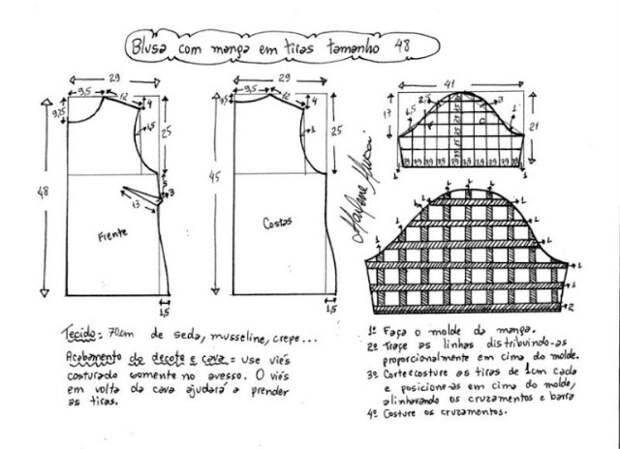 Blusa com manga em tiras tamanho 48
29
9,5
12
4
9,75
1,5
25
48
3
3
13
Frente
1,5
29
9,5
12
4
1
25
45
Costas
1,5
Marlene Mukai
41
17
21
1,5
2,5
3
1
1
1
Tecido: 70cm de seda, musseline, crepe...
Acabamento do decote e cava = Use viés
costurado somente no avesso. O viés
em volta da cava ajudará a prender
as tiras.
1º Faça o molde da manga.
2º Trace as linhas distribuindo-as
proporcionalmente em cima do molde.
3º Corte e costure as tiras de 1cm cada
e posicione-as em cima do molde,
alinhavando os cruzamentos e barra
4º Costure os cruzamentos.